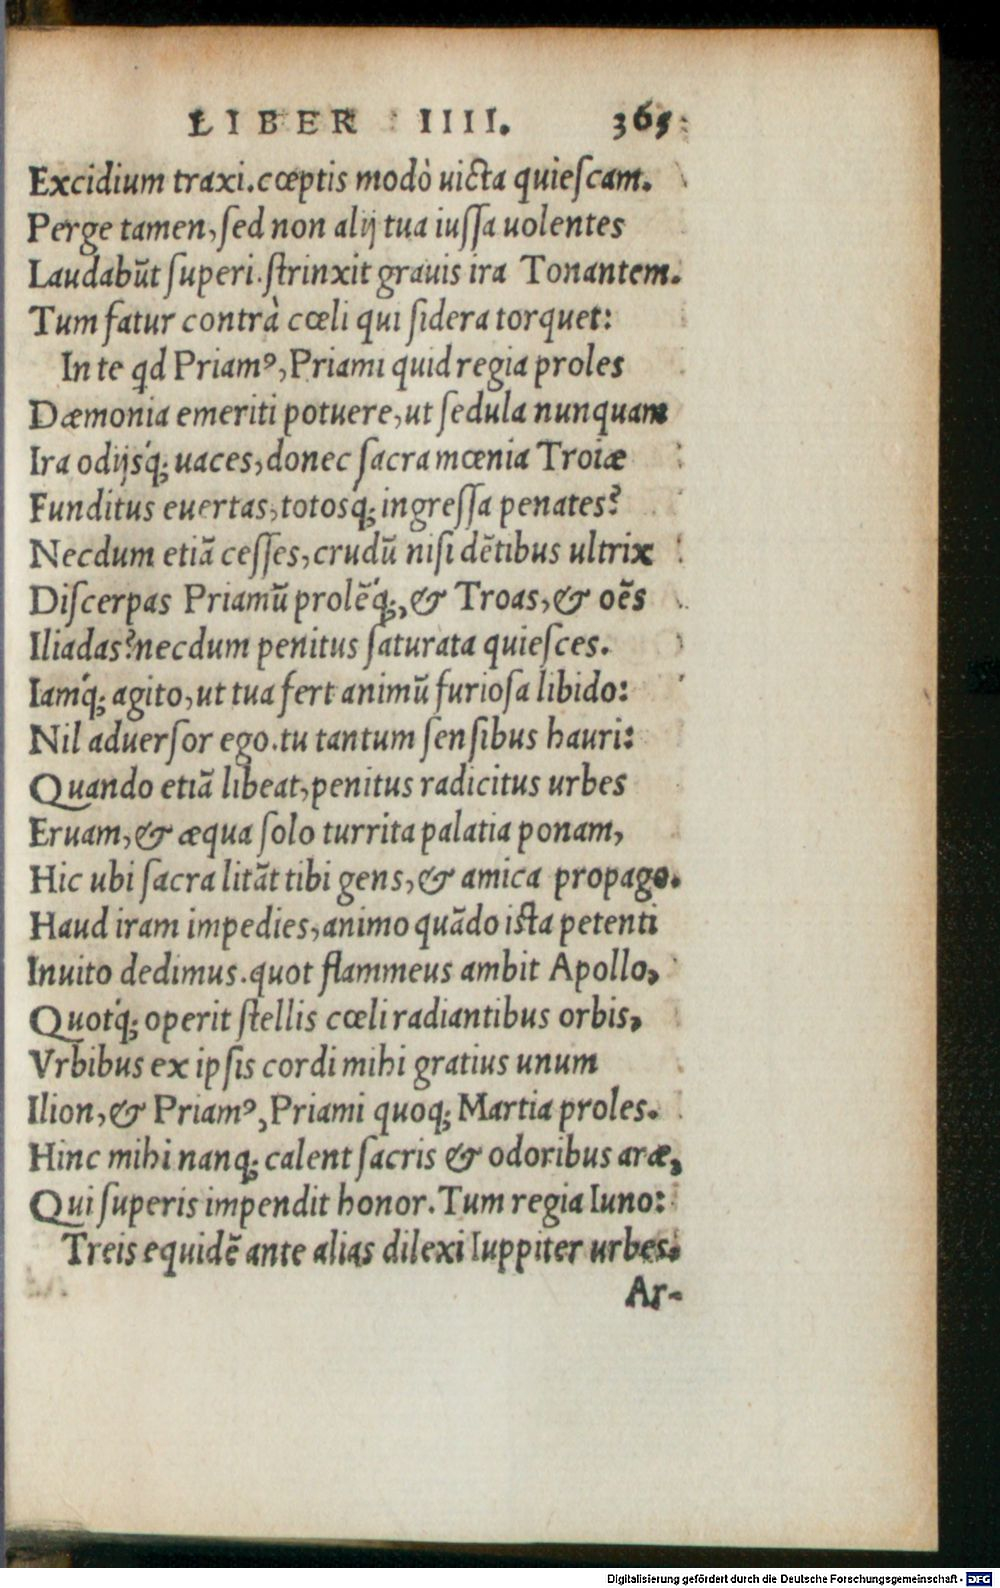 LIBER IIII. 365
Excidium traxi.cœptis modò uicta quieſcam.
Perge tamen, ſed non alij tua iuſſa uolentes
Laudabũt ſuperi.ſtrinxit grauis ira Tonantem.
Tum fatur contrà cœli qui ſidera torquet:
In te qd Priamꝰ, Priami quid regia proles
Dæmonia emeriti potuere, ut ſedula nunquam
Ira odijsq́; uaces, donec ſacra mœnia Troiæ
Funditus euertas, totosq́; ingreſſa penates?
Necdum etiã ceſſes, crudũ niſi dẽtibus ultrix
Diſcerpas Priamũ prolẽq́;, & Troas, & oẽs
Iliadas? necdum penitus ſaturata quieſces.
Iamq́; agito, ut tua fert animũ furioſa libido:
Nil aduerſor ego.tu tantum ſenſibus hauri:
Quando etiã libeat, penitus radicitus urbes
Eruam, & æqua ſolo turrita palatia ponam,
Hic ubi ſacra litãt tibi gens, & amica propago.
Haud iram impedies, animo quãdo iſta petenti
Inuito dedimus.quot flammeus ambit Apollo,
Quotq́; operit ſtellis cœli radiantibus orbis,
Vrbibus ex ipſis cordi mihi gratius unum
Ilion, & Priamꝰ, Priami quoq; Martia proles.
Hinc mihi nanq; calent ſacris & odoribus aræ,
Qui ſuperis impendit honor. Tum regia Iuno:
Treis equidẽ ante alias dilexi Iuppiter urbes.
Ar-
Digitalisierung gefördert durch die Deutsche Forschungsgemeinschaft - DFG